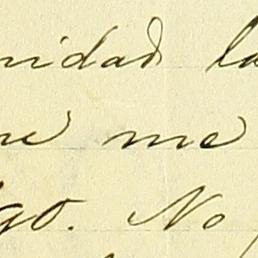 nidad la
me
go. No